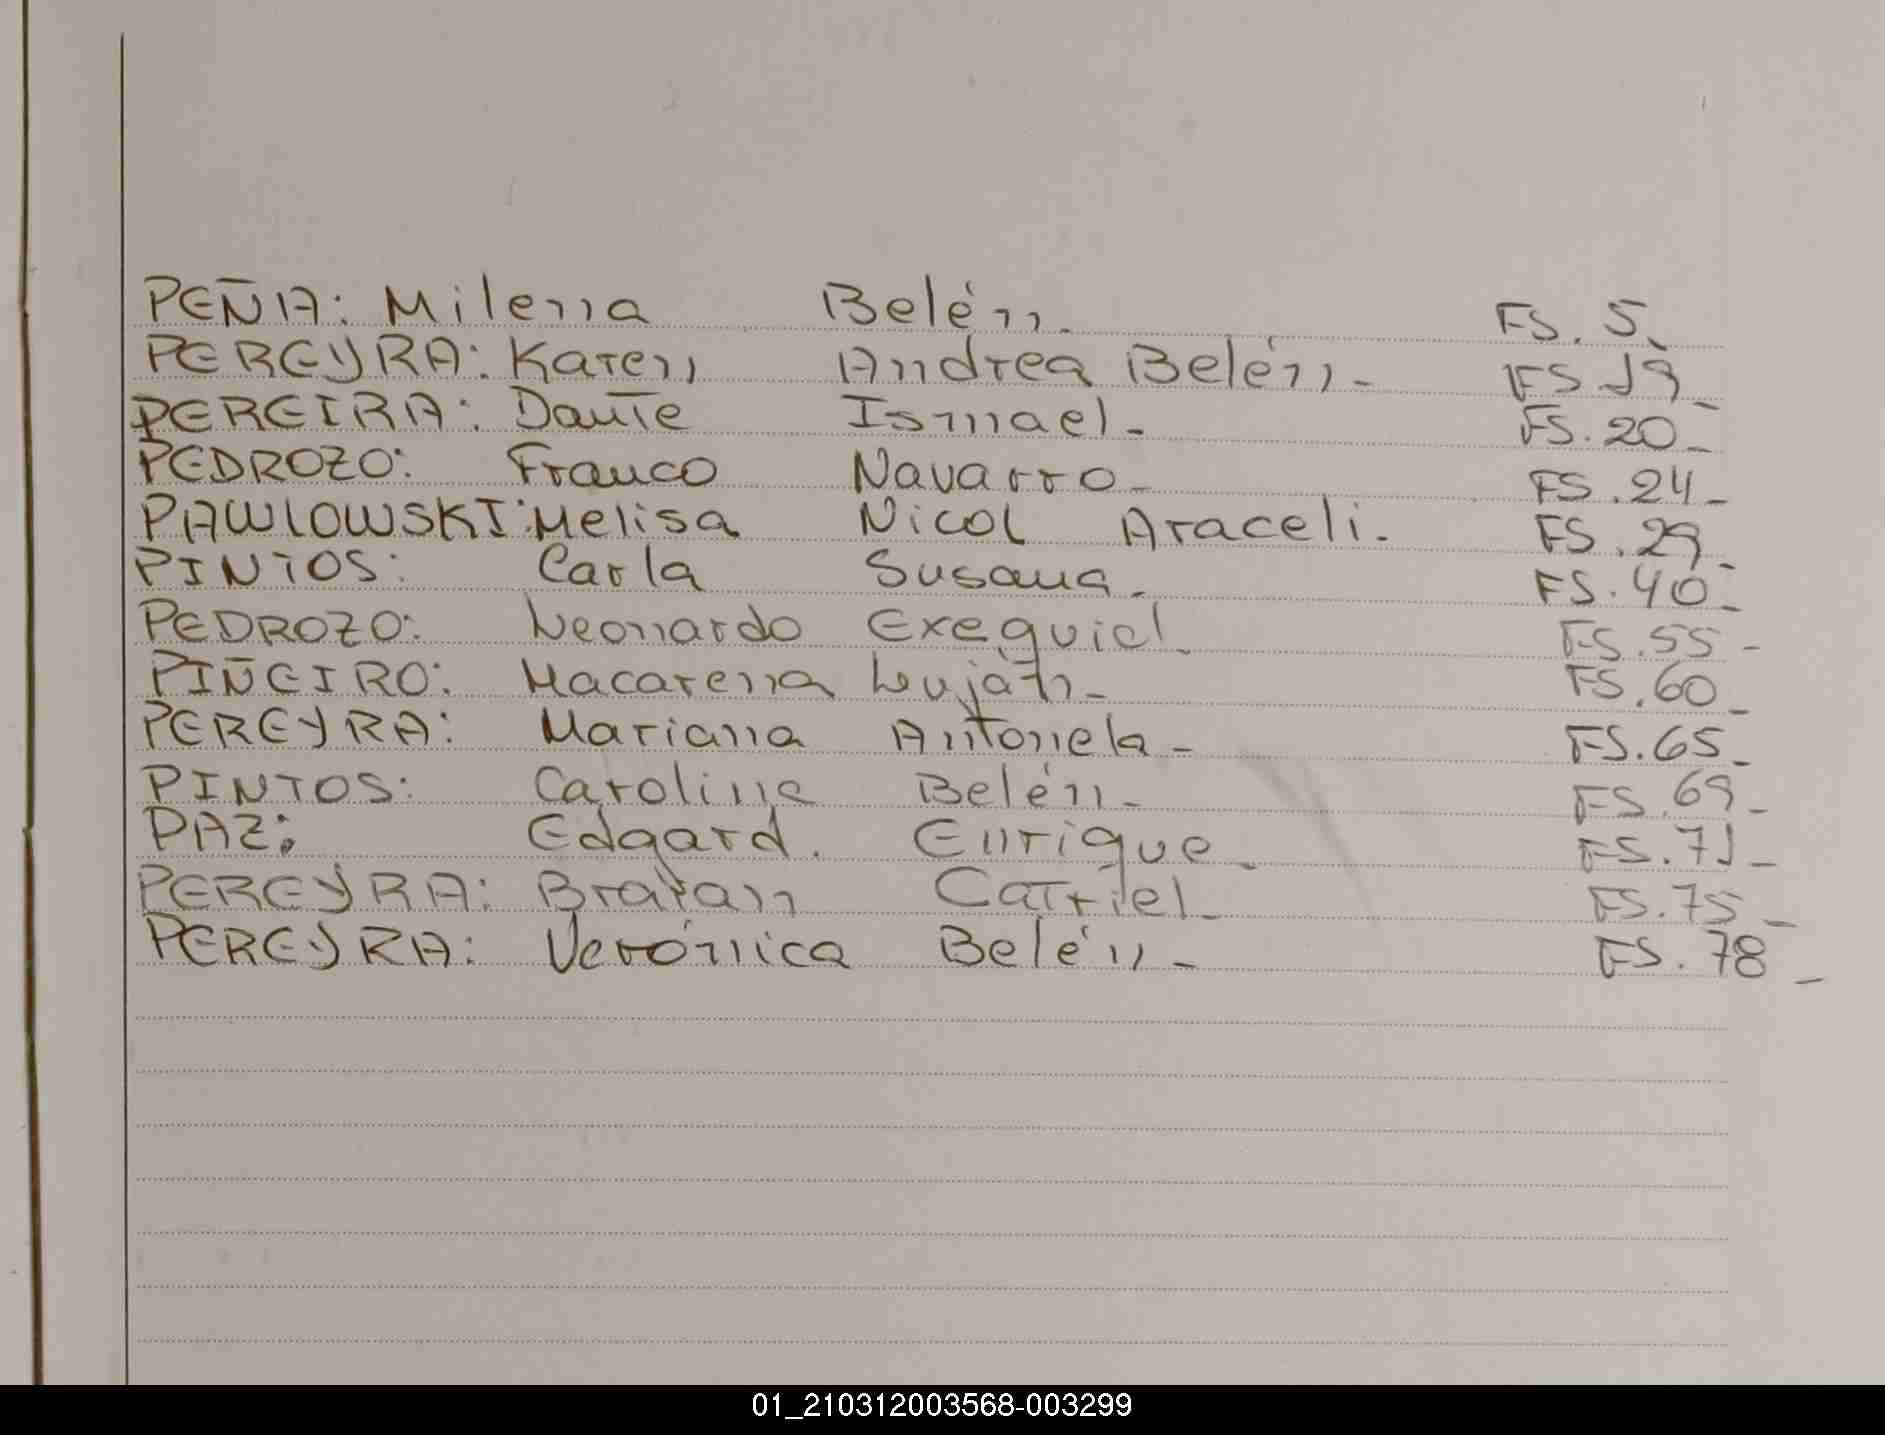 PEÑA: Milena Belén. FS. 5_
PEREYRA: Karen Andrea Belén_ FS 19_
PEREIRA: Dante Ismael_ FS. 20_
PEDROZO: Franco Navarro_ FS. 24_
PAWLOWSKI: Melisa Nicol Araceli. FS. 29_
PINTOS: Carla Susana_ FS. 40_
PEDROZO: Leonardo Exequiel_ FS. 55_
PIÑEIRO: Macarena Luján_ FS. 60_
PEREYRA: Mariana Antonela_ FS. 65_
PINTOS: Carolina Belén_ FS. 69_
PAZ: Edgard. Enrique_ FS. 71_
PEREYRA: Braian Catriel_ FS. 75_
PEREYRA: Verónica Belén_ FS. 78_
01_210312003568-003299